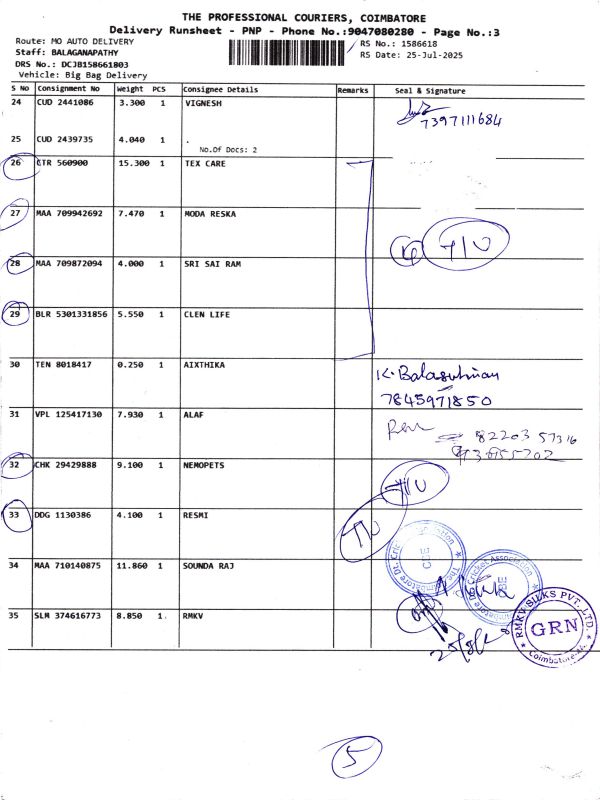 THE PROFESSIONAL COURIERS, COIMBATORE
Delivery Runsheet - PNP - Phone No.:9047080280 - Page No.:3
Route: MO AUTO DELIVERY
RS No.: 1586618
Staff: BALAGANAPATHY
RS Date: 25-Jul-2025
DRS No.: DCJB158661803
Vehicle: Big Bag Delivery
S No Consignment No Weight PCS Consignee Details Remarks Seal & Signature
24 CUD 2441086 3.300 1 VIGNESH
7397111684
25 CUD 2439735 4.040 1 .
No.Of Docs: 2
26 CTR 560900 15.300 1 TEX CARE
27 MAA 709942692 7.470 1 MODA RESKA
T/U
28 MAA 709872094 4.000 1 SRI SAI RAM
29 BLR 5301331856 5.550 1 CLEN LIFE
30 TEN 8018417 0.250 1 AIXTHIKA
K. Balasubman
7845971850
31 VPL 125417130 7.930 1 ALAF
82203 57316
32 CHK 29429888 9.100 1 NEMOPETS
T/U
33 DDG 1130386 4.100 1 RESMI
T/U
34 MAA 710140875 11.860 1 SOUNDA RAJ
Cricket Association
CBE
35 SLM 374616773 8.850 1 RMKV
RMKV SILKS PVT. LTD.
GRN
Coimbatore
5